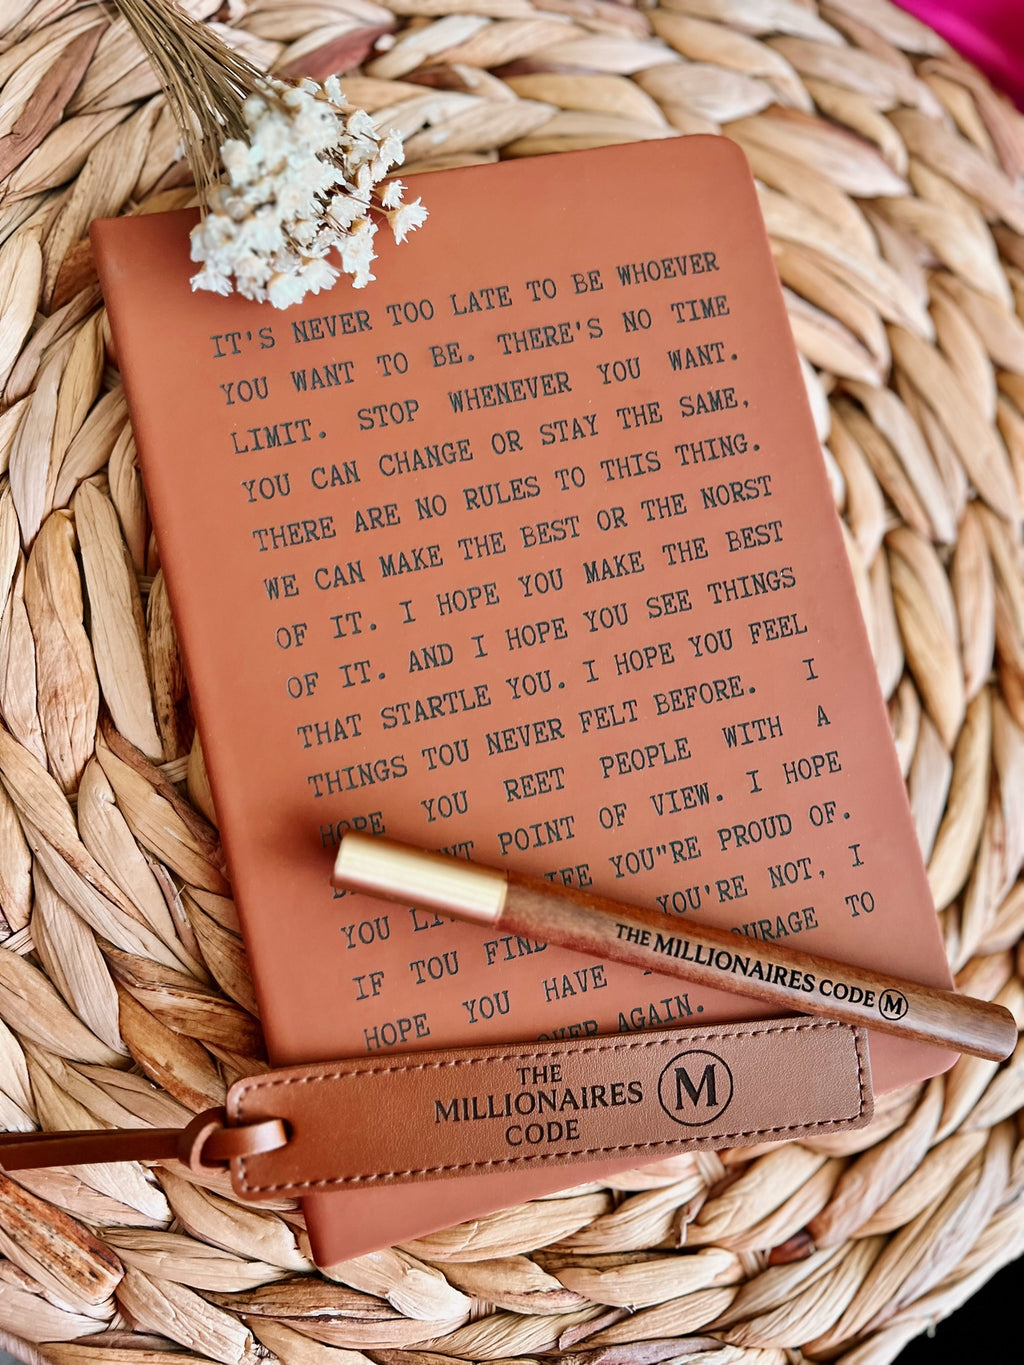 IT'S NEVER TOO LATE TO BE WHOEVER
YOU WANT TO BE. THERE'S NO TIME
LIMIT. STOP WHENEVER YOU WANT.
YOU CAN CHANGE OR STAY THE SAME,
THERE ARE NO RULES TO THIS THING.
WE CAN MAKE THE BEST OR THE NORST
OF IT. I HOPE YOU MAKE THE BEST
OF IT. AND I HOPE YOU SEE THINGS
THAT STARTLE YOU. I HOPE YOU FEEL
THINGS TOU NEVER FELT BEFORE. I
HOPE YOU REET PEOPLE WITH A
POINT OF VIEW. I HOPE
YOU YOU"RE PROUD OF.
IF TOU FIND YOU'RE NOT, I
HOPE YOU HAVE TO
OVER AGAIN.
THE MILLIONAIRES CODE M
THE
MILLIONAIRES
CODE
M